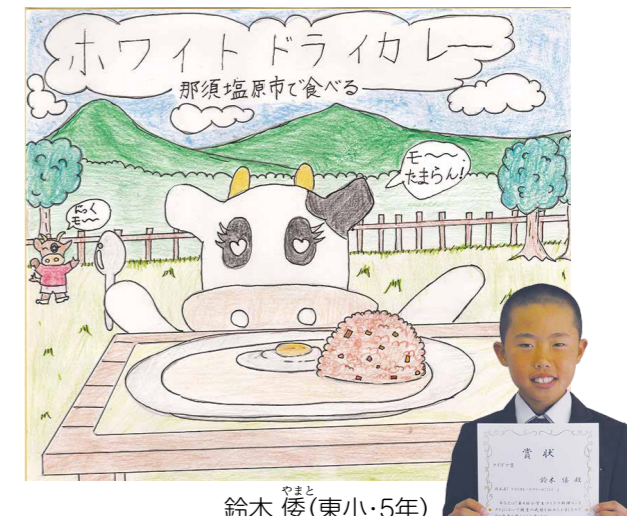 ホワイトドライカレー
那須塩原市で食べる
モ〜〜
たまらん!
にっく
モ〜〜
賞状
やまと
鈴木 倭(東小・5年)